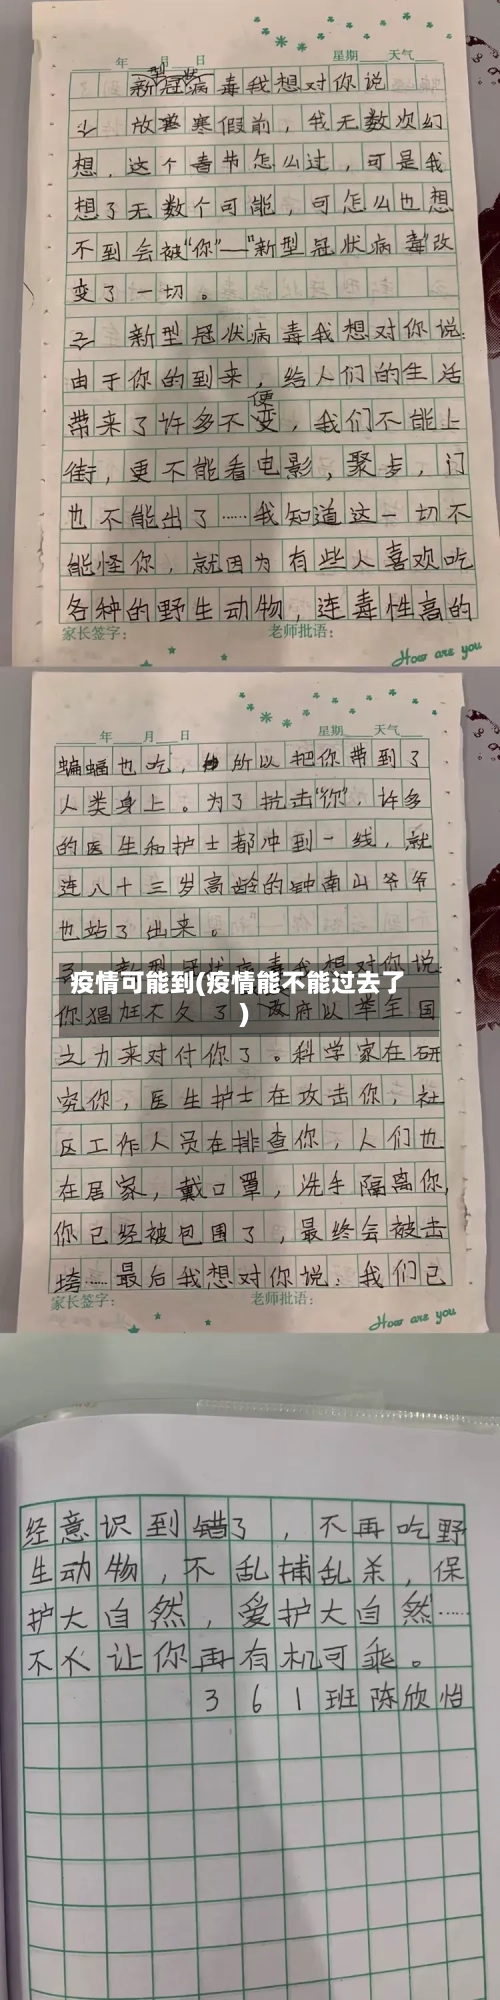 年 月 日 星期 天气
新型冠状病毒我想对你说
放寒假前，我无数次幻
想，这个春节怎么过，可是我
想了无数个可能，可怎么也想
不到会被“你”——“新型冠状病毒”改
变了一切。
新型冠状病毒我想对你说：
由于你的到来，给人们的生活
带来了许多不便，我们不能上
街，更不能看电影，聚步，门
也不能出了……我知道这一切不
能怪你，就因为有些人喜欢吃
各种的野生动物，连毒性高的
家长签字： 老师批语：
How are you
年 月 日 星期 天气
蝙蝠也吃，所以把你带到了
人类身上。为了抗击“你”，许多
的医生和护士都冲到一线，就
连八十三岁高龄的钟南山爷爷
也站了出来。
新型冠状病毒我想对你说
疫情可能到(疫情能不能过去了
)
你猖狂不久了，政府以举全国
之力来对付你了。科学家在研
究你，医生护士在攻击你，社
区工作人员在排查你，人们也
在居家，戴口罩，洗手隔离你，
你已经被包围了，最终会被击
垮……最后我想对你说：我们已
家长签字： 老师批语：
How are you
经意识到错了，不再吃野
生动物，不乱捕乱杀，保
护大自然，爱护大自然……
不让你再有机可乘。
361班陈欣怡